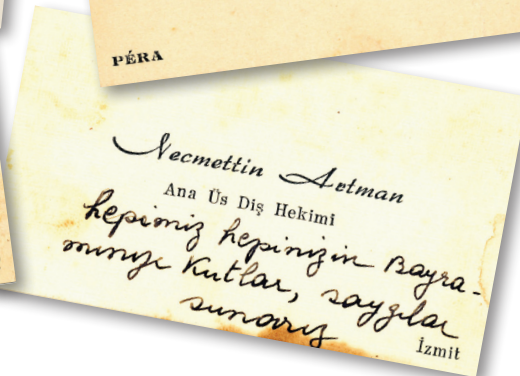 PÉRA
Necmettin Artman
Ana Üs Diş Hekimi
hepimiz hepinizin Bayra-
mınızı kutlar, saygılar
sunarız
İzmit